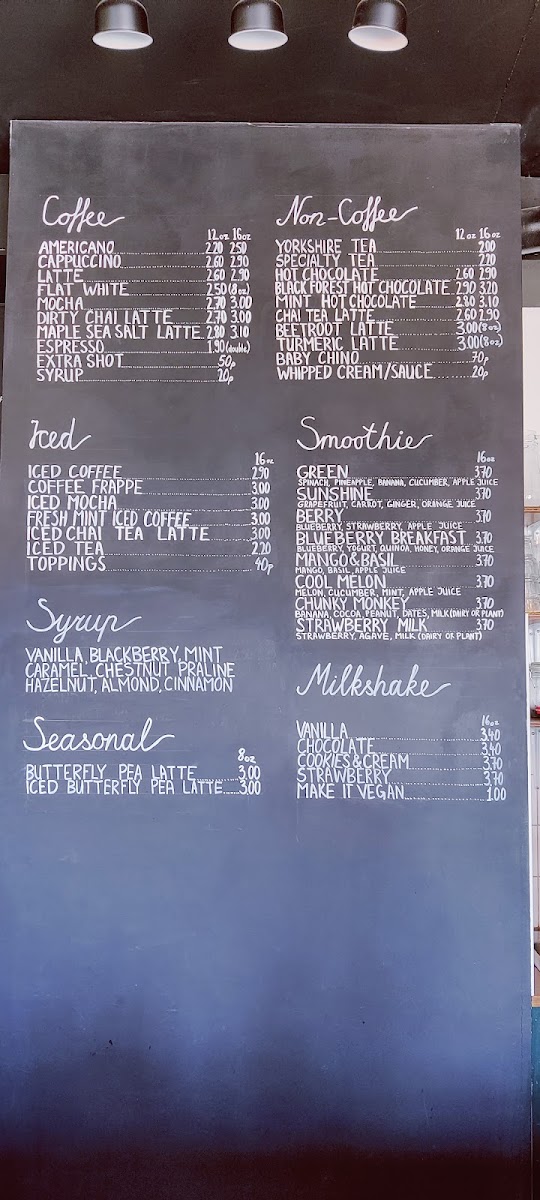 Coffee
12oz 16oz
AMERICANO 2.20 2.50
CAPPUCCINO 2.60 2.90
LATTE 2.60 2.90
FLAT WHITE 2.50 (8oz)
MOCHA 2.70 3.00
DIRTY CHAI LATTE 2.70 3.00
MAPLE SEA SALT LATTE 2.80 3.10
ESPRESSO 1.90 (double)
EXTRA SHOT 50p
SYRUP 20p
Non-Coffee
12oz 16oz
YORKSHIRE TEA 2.00
SPECIALTY TEA 2.20
HOT CHOCOLATE 2.60 2.90
BLACK FOREST HOT CHOCOLATE 2.90 3.20
MINT HOT CHOCOLATE 2.80 3.10
CHAI TEA LATTE 2.60 2.90
BEETROOT LATTE 3.00 (8oz)
TURMERIC LATTE 3.00 (8oz)
BABY CHINO 70p
WHIPPED CREAM/SAUCE 20p
Iced
16oz
ICED COFFEE 2.90
COFFEE FRAPPE 3.00
ICED MOCHA 3.00
FRESH MINT ICED COFFEE 3.00
ICED CHAI TEA LATTE 3.00
ICED TEA 2.20
TOPPINGS 40p
Smoothie
16oz
GREEN 3.70
SPINACH, PINEAPPLE, BANANA, CUCUMBER, APPLE JUICE
SUNSHINE 3.70
GRAPEFRUIT, CARROT, GINGER, ORANGE JUICE
BERRY 3.70
BLUEBERRY, STRAWBERRY, APPLE JUICE
BLUEBERRY BREAKFAST 3.70
BLUEBERRY, YOGURT, QUINOA, HONEY, ORANGE JUICE
MANGO & BASIL 3.70
MANGO, BASIL, APPLE JUICE
COOL MELON 3.70
MELON, CUCUMBER, MINT, APPLE JUICE
CHUNKY MONKEY 3.70
BANANA, COCOA, PEANUT, DATES, MILK (DAIRY OR PLANT)
STRAWBERRY MILK 3.70
STRAWBERRY, AGAVE, MILK (DAIRY OR PLANT)
Syrup
VANILLA, BLACKBERRY, MINT
CARAMEL, CHESTNUT PRALINE
HAZELNUT, ALMOND, CINNAMON
Seasonal
8oz
BUTTERFLY PEA LATTE 3.00
ICED BUTTERFLY PEA LATTE 3.00
Milkshake
16oz
VANILLA 3.40
CHOCOLATE 3.40
COOKIES & CREAM 3.70
STRAWBERRY 3.70
MAKE IT VEGAN 1.00